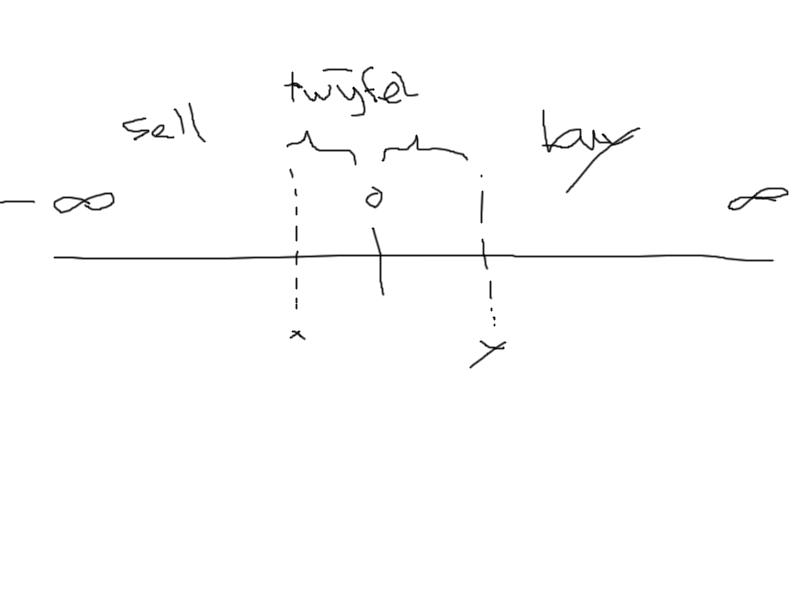 twijfel
sell
buy
-∞
0
∞
x
y